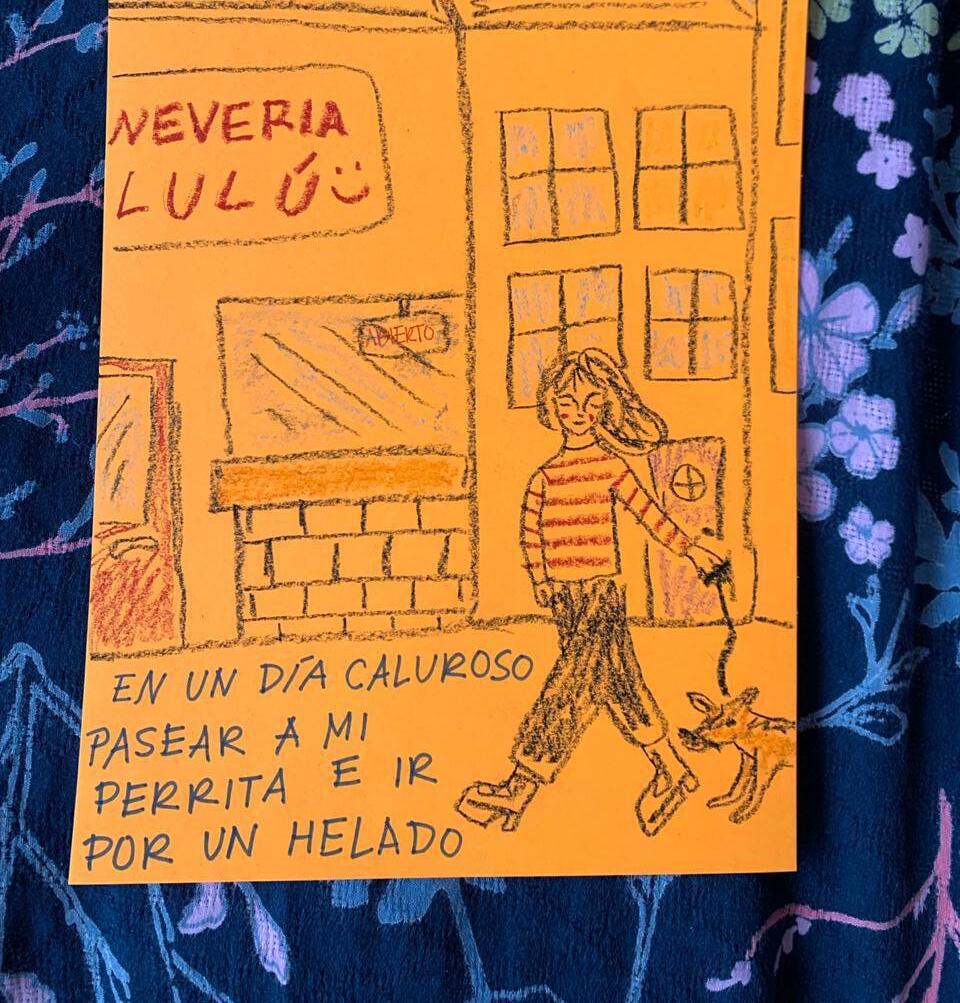 NEVERIA
LULÚ
ABIERTO
EN UN DÍA CALUROSO
PASEAR A MI
PERRITA E IR
POR UN HELADO